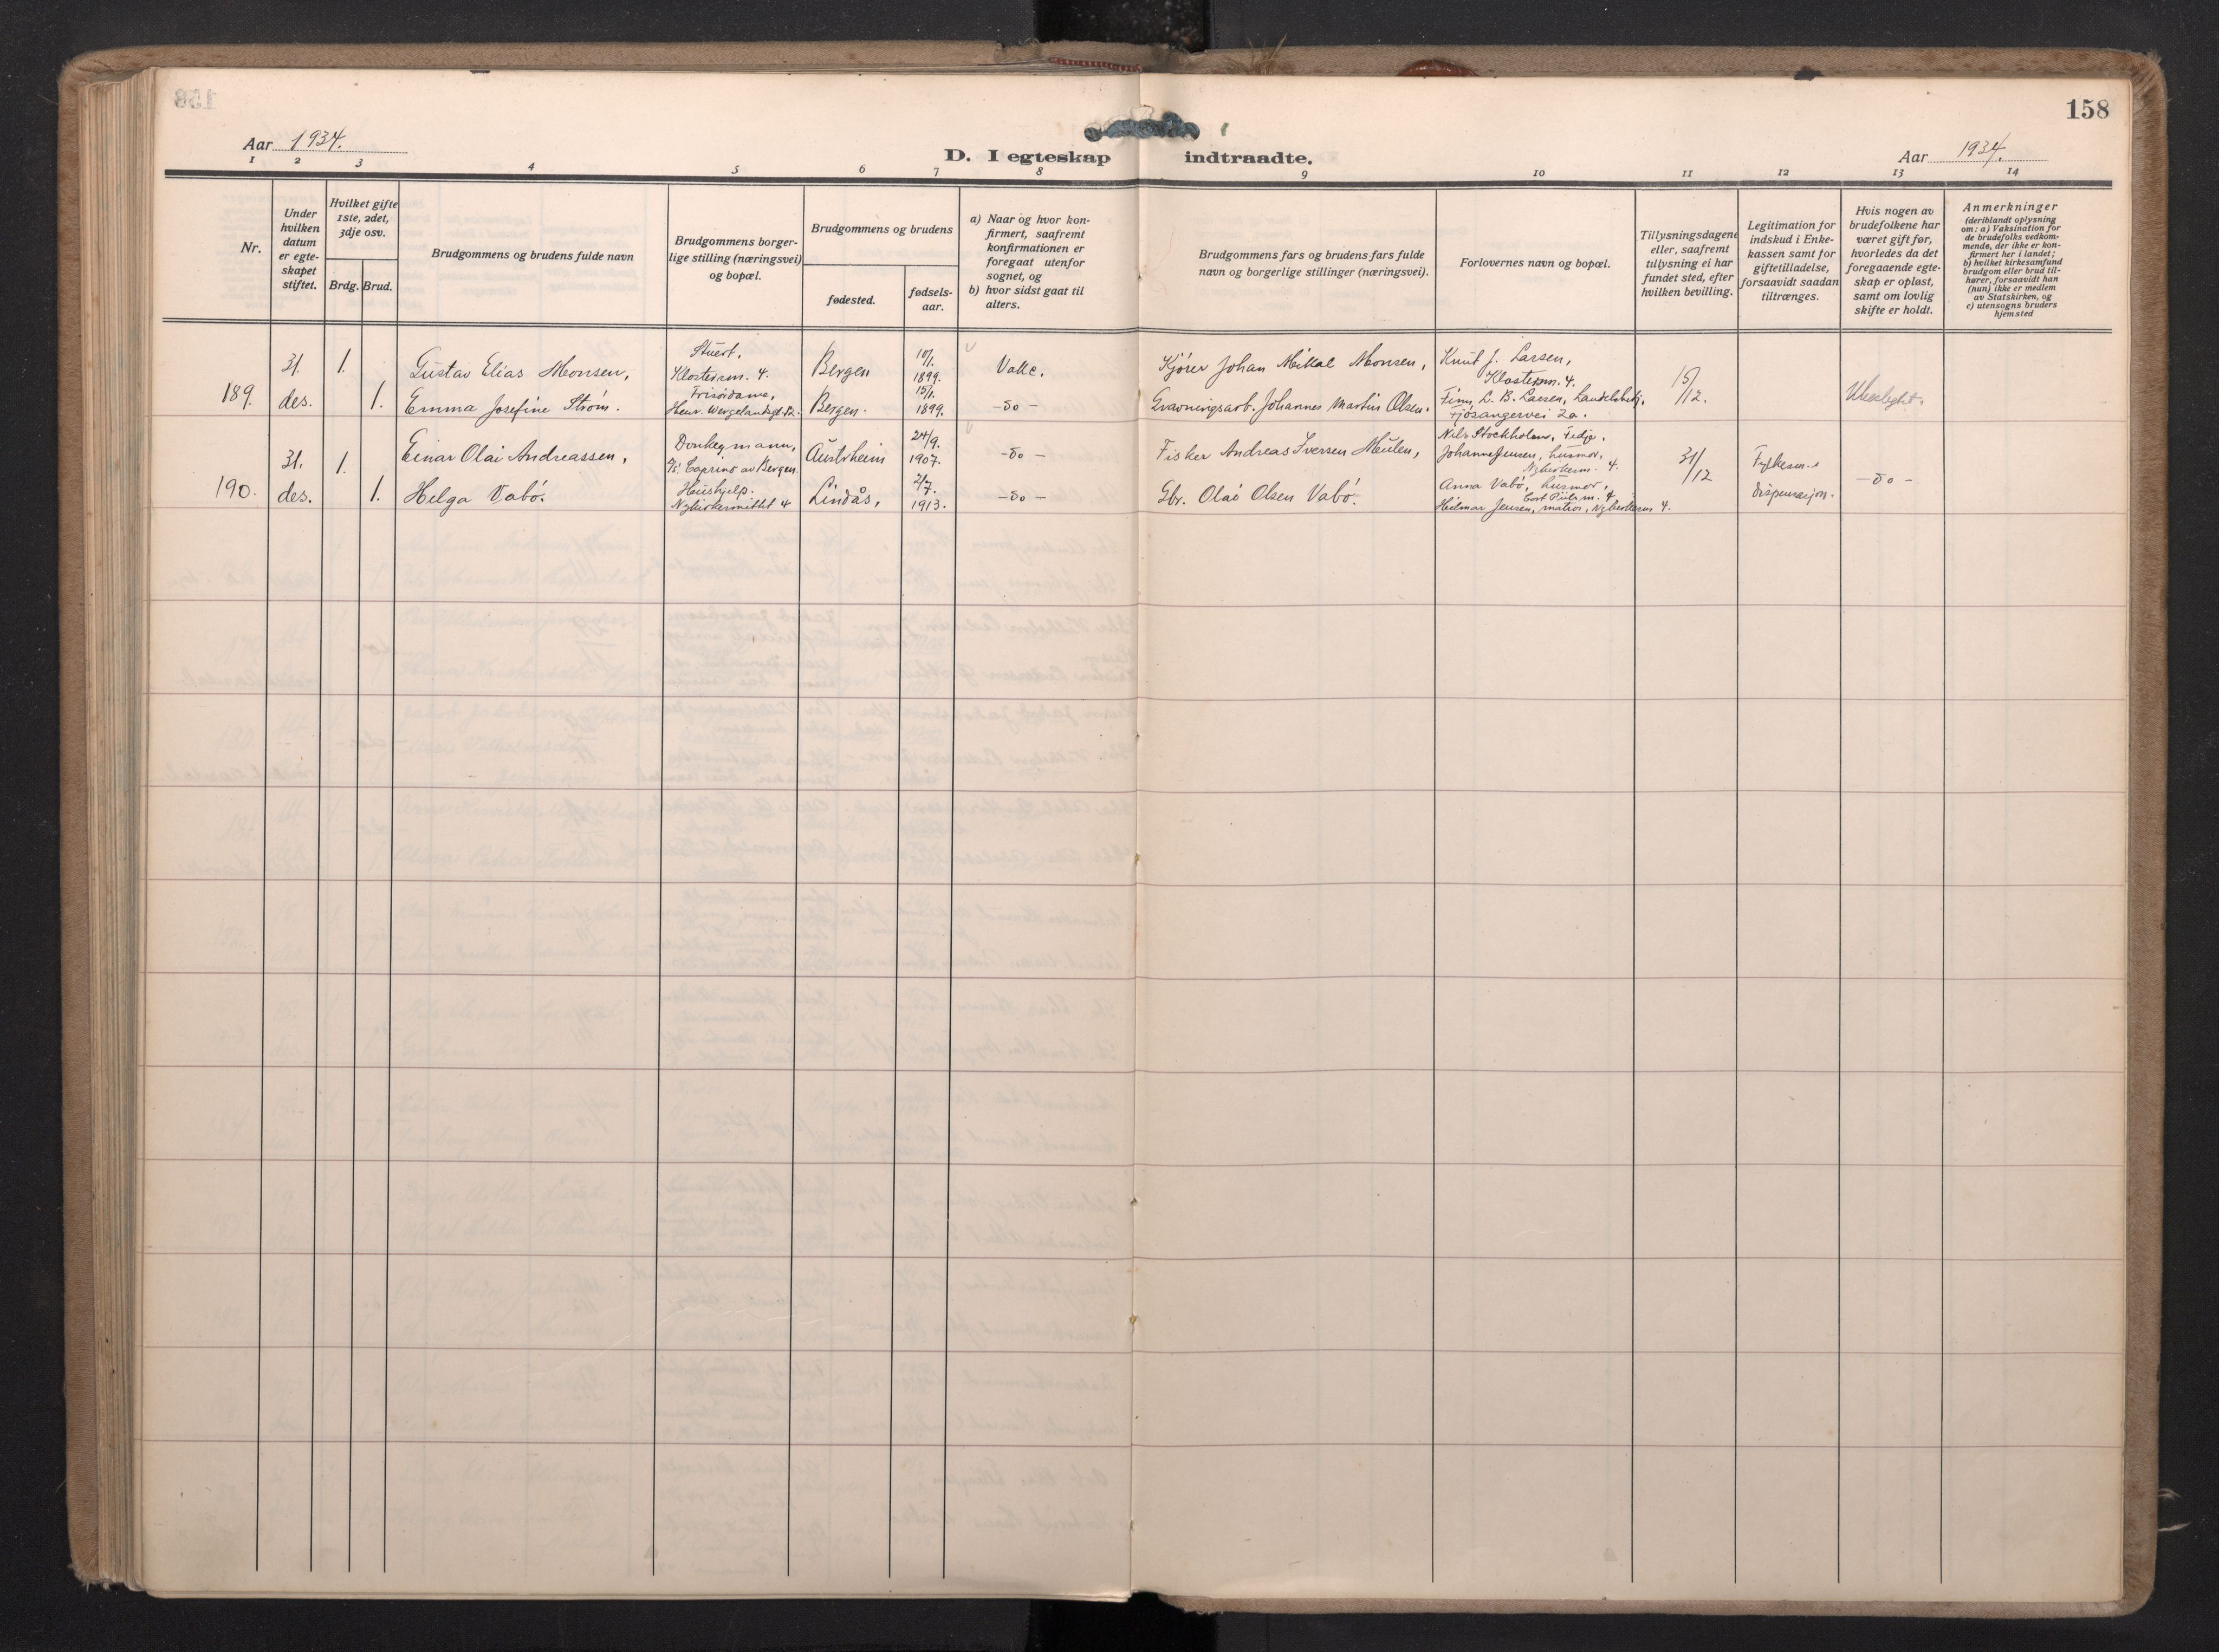 158
Aar 1934.
D. I egteskap indtraadte.
Aar 1934.
1 2 3 4 5 6 7 8 9 10 11 12 13 14
Nr.
Under
hvilken
datum
er egte-
skapet
stiftet.
Hvilket gifte
1ste, 2det,
3dje osv.
Brdg. Brud.
Brudgommens og brudens fulde navn
Brudgommens borger-
lige stilling (næringsvei)
og bopæl.
Brudgommens og brudens
fødested.
fødsels-
aar.
a) Naar og hvor kon-
firmert, saafremt
konfirmationen er
foregaat utenfor
sognet, og
b) hvor sidst gaat til
alters.
Brudgommens fars og brudens fars fulde
navn og borgerlige stillinger (næringsvei).
Forlovernes navn og bopæl.
Tillysningsdagene
eller, saafremt
tillysning ei har
fundet sted, efter
hvilken bevilling.
Legitimation for
indskud i Enke-
kassen samt for
giftetilladelse,
forsaavidt saadan
tiltrænges.
Hvis nogen av
brudefolkene har
været gift før,
hvorledes da det
foregaaende egte-
skap er opløst,
samt om lovlig
skifte er holdt.
Anmerkninger
(deriblandt oplysning
om: a) Vaksination for
de brudefolks vedkom-
mende, der ikke er kon-
firmert her i landet;
b) hvilket kirkesamfund
brudgom eller brud til-
hører, forsaavidt han
(hun) ikke er medlem
av Statskirken, og
c) utensogns bruders
hjemsted
189.
31.
des.
1.
1.
Gustav Elias Monsen,
Emma Josefine Strøm.
Stuert,
Klosterm. 4.
Frisørdame,
Henr. Wergelandsgt. 12.
Bergen
Bergen.
10/1.
1899.
15/1.
1899.
Vatle.
-do-
Kjører Johan Mikal Monsen,
Gravningsarb. Johannes Martin Olsen.
Knut J. Larsen,
Klosterm. 4.
Finn L. B. Larsen,
Fjøsangervei 2a.
15/12.
Ubeslegtet.
190.
31.
des.
1.
1.
Einar Olai Andreassen,
Helga Vabø.
Donkeymann,
D/S Caprino av Bergen.
Hushjelp.
Nykirkesmithl 4
Austrheim
Lindås,
24/9.
1907.
2/7.
1913.
-do-
-do-
Fisker Andreas Iversen Mulen,
Gbr. Olai Olsen Vabø.
Nils Stockholm, Fedje.
Johanne Jensen, husmor,
Nykirkesm. 4.
Anna Vabø, husmor,
Cort Piilsm. 4
Hilmar Jensen, matros, Nykirkesm 4.
31/12
Fylkesm.s
dispensasjon.
-do-